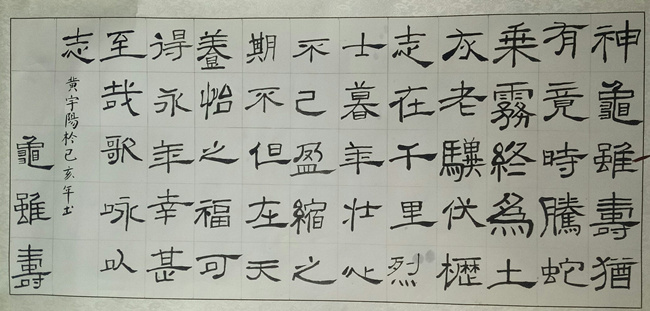 神龜雖壽猶
有竟時騰蛇
乘霧終爲土
灰老驥伏櫪
志在千里烈
士暮年壯心
不已盈縮之
期不但在天
養怡之福可
得永年幸甚
至哉歌咏以
志
黄宇陽於己亥年书
龜雖壽